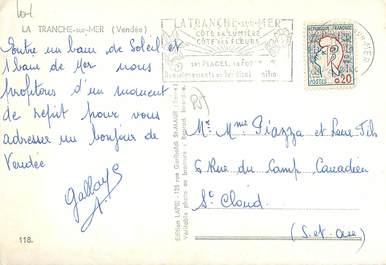 lot
LA TRANCHE-sur-MER (Vendée)
Entre un bain de Soleil et
1 bain de Mer nous
profitons d'un moment
de répit pour vous
adresser un bonjour de
Vendée
Gallay
118.
Edition LAPIE - 125 rue Garibaldi St-MAUR (Seine)
Véritable photo au bromure - Reproduction
LA TRANCHE-sur-MER
CÔTE de LUMIÈRE
CÔTE des FLEURS
SES PLAGES, SA FORÊT
SUR-MER
POSTES 0,20
Mr Mme Piazza et Leur Fils
6 Rue du Camp Canadien
St Cloud
(S. et Oise)